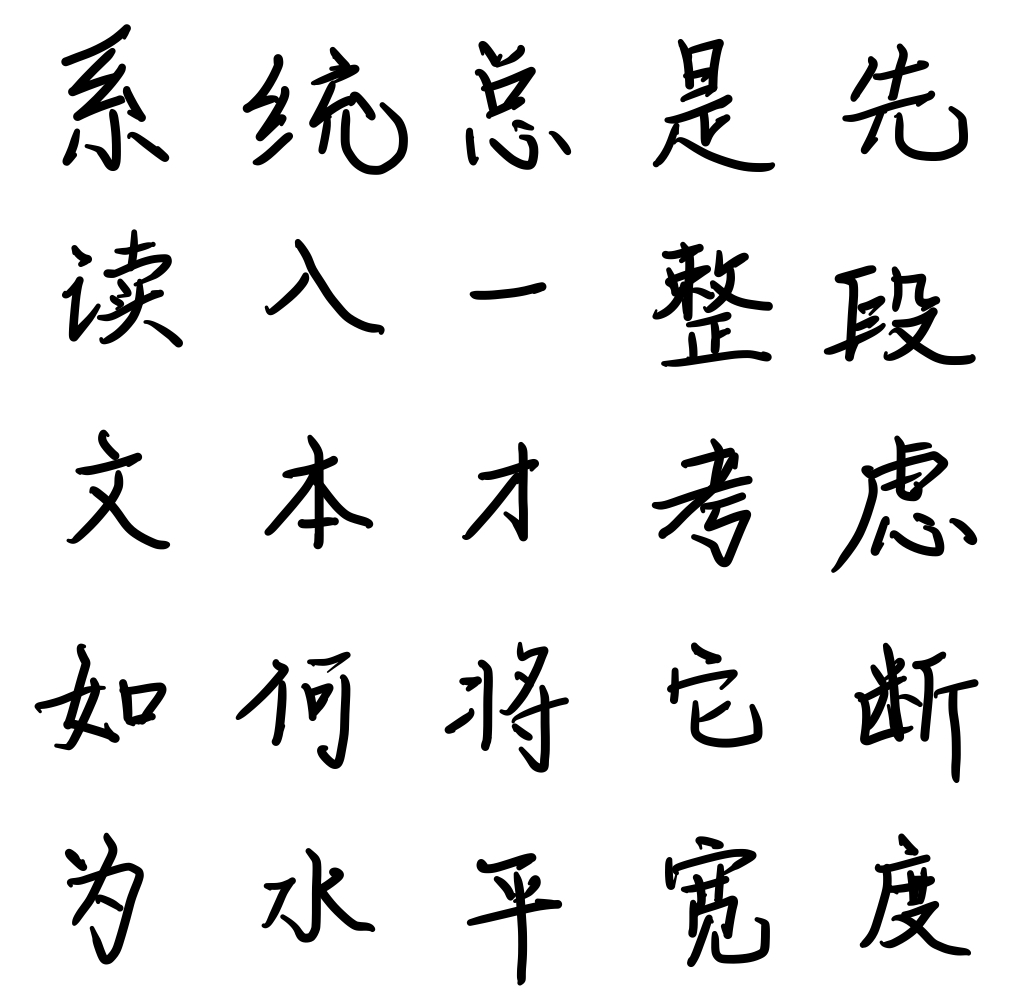 系统总是先
读入一整段
文本才考虑
如何将它断
为水平宽度